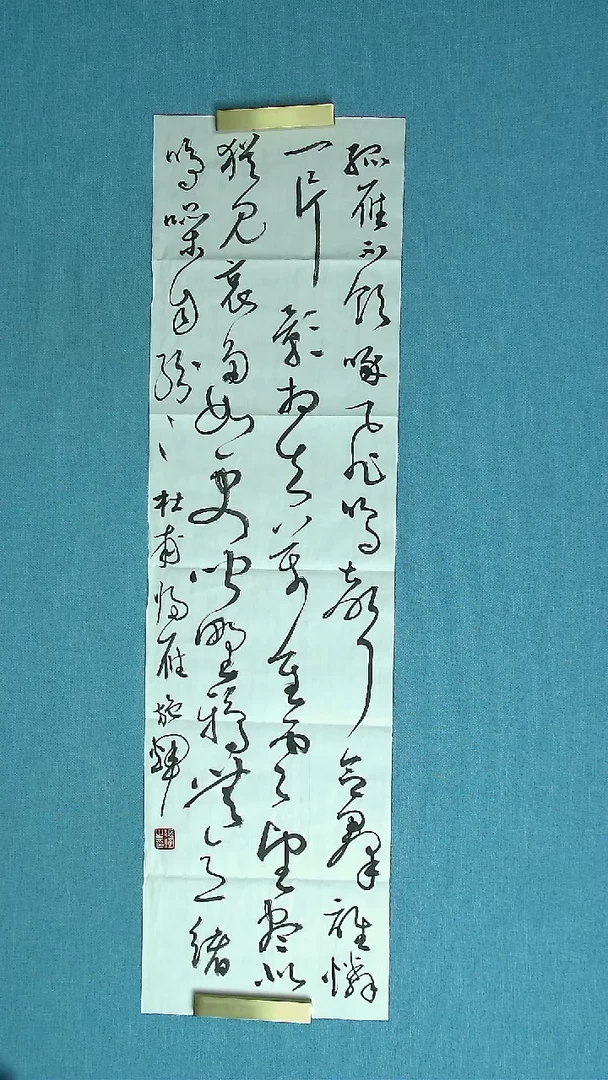 孤雁不飲啄飛鳴聲念羣誰憐
一片影相失萬重雲望盡似
猶見哀多如更聞野鴉無意緒
鳴噪自紛〻杜甫歸雁施輝